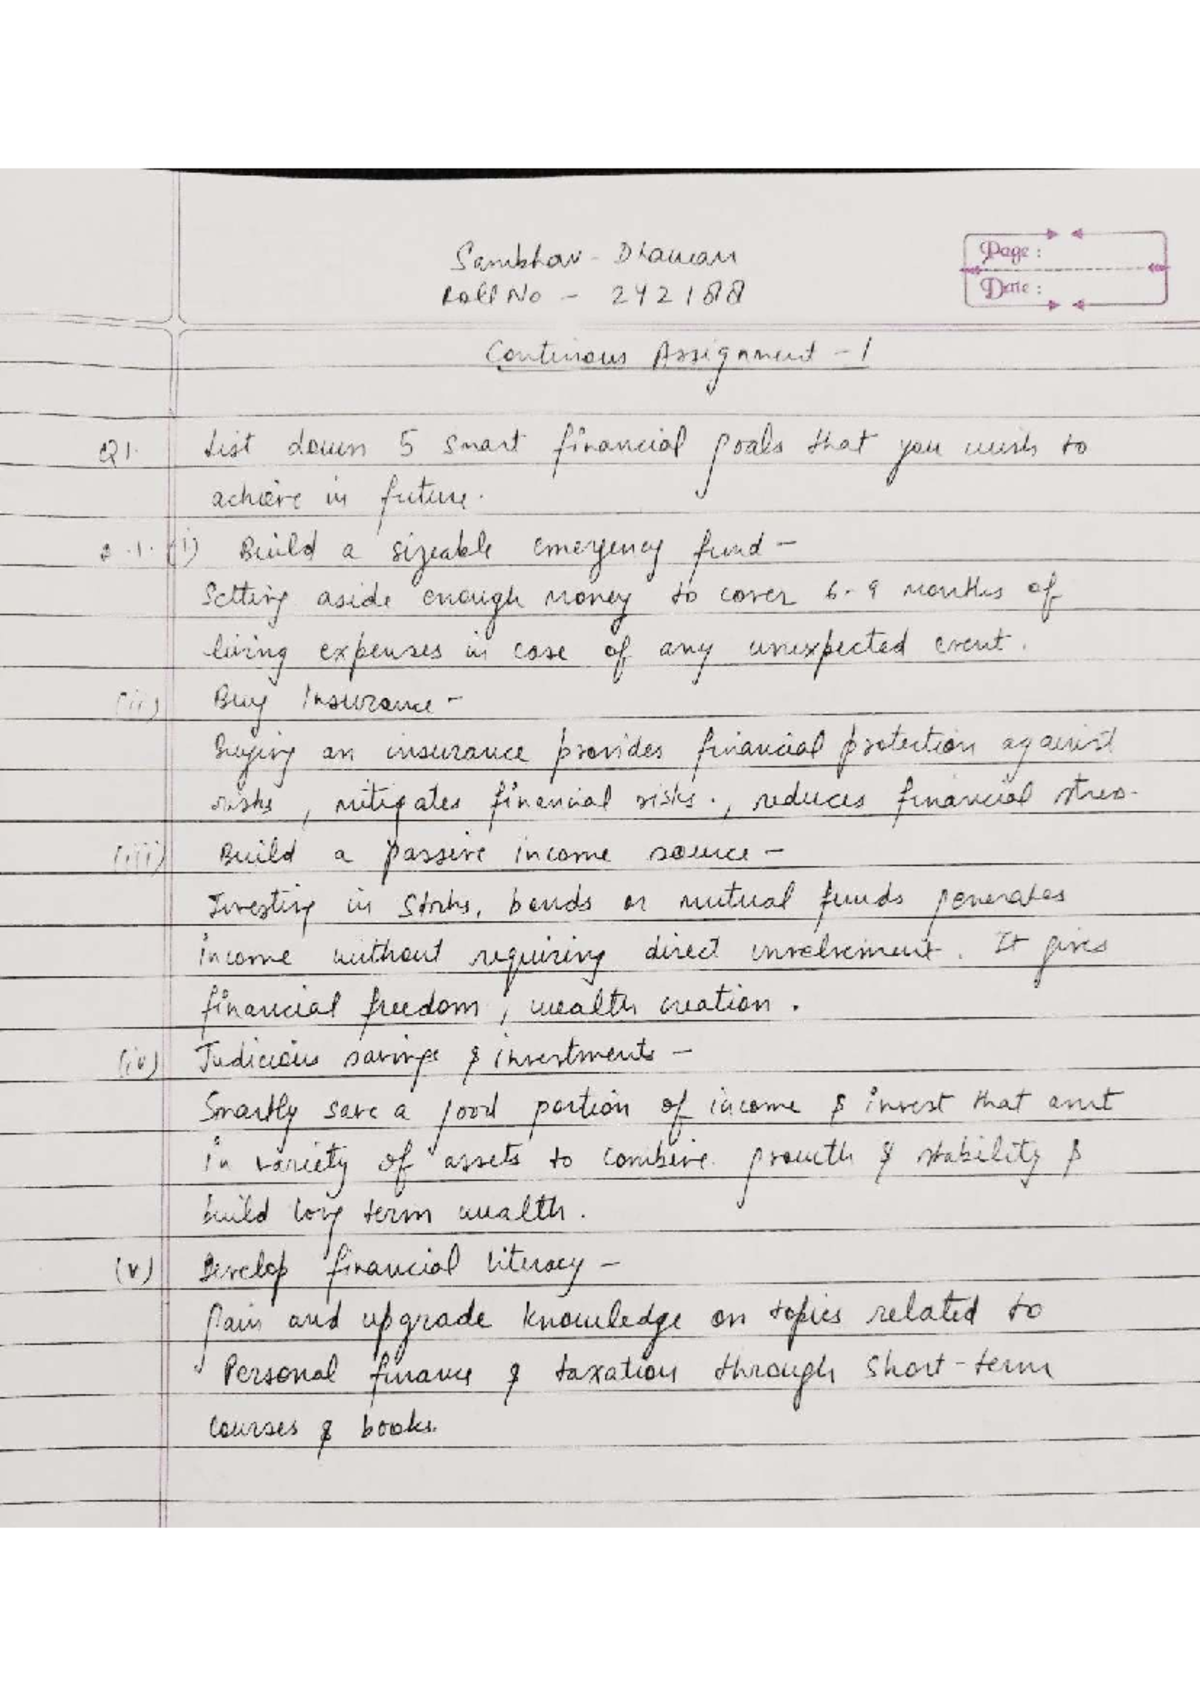 Sambhav - Dhawan
Roll No - 242188
Page :
Date :
Continous Assignment - 1
Q1. List down 5 smart financial goals that you wish to
achieve in future.
(i) Build a sizeable emergency fund -
Setting aside enough money to cover 6-9 months of
living expenses in case of any unexpected event.
(ii) Buy Insurance -
Buying an insurance provides financial protection against
risks, mitigates financial risks., reduces financial stress.
(iii) Build a passive income source -
Investing in stocks, bonds or mutual funds generates
income without requiring direct involvement. It gives
financial freedom, wealth creation.
(iv) Judicious savings & investments -
Smartly save a good portion of income & invest that amt
in variety of assets to combine growth & stability &
build long term wealth.
(v) Develop financial literacy -
Gain and upgrade knowledge on topics related to
Personal finance & taxation through short-term
courses & books.